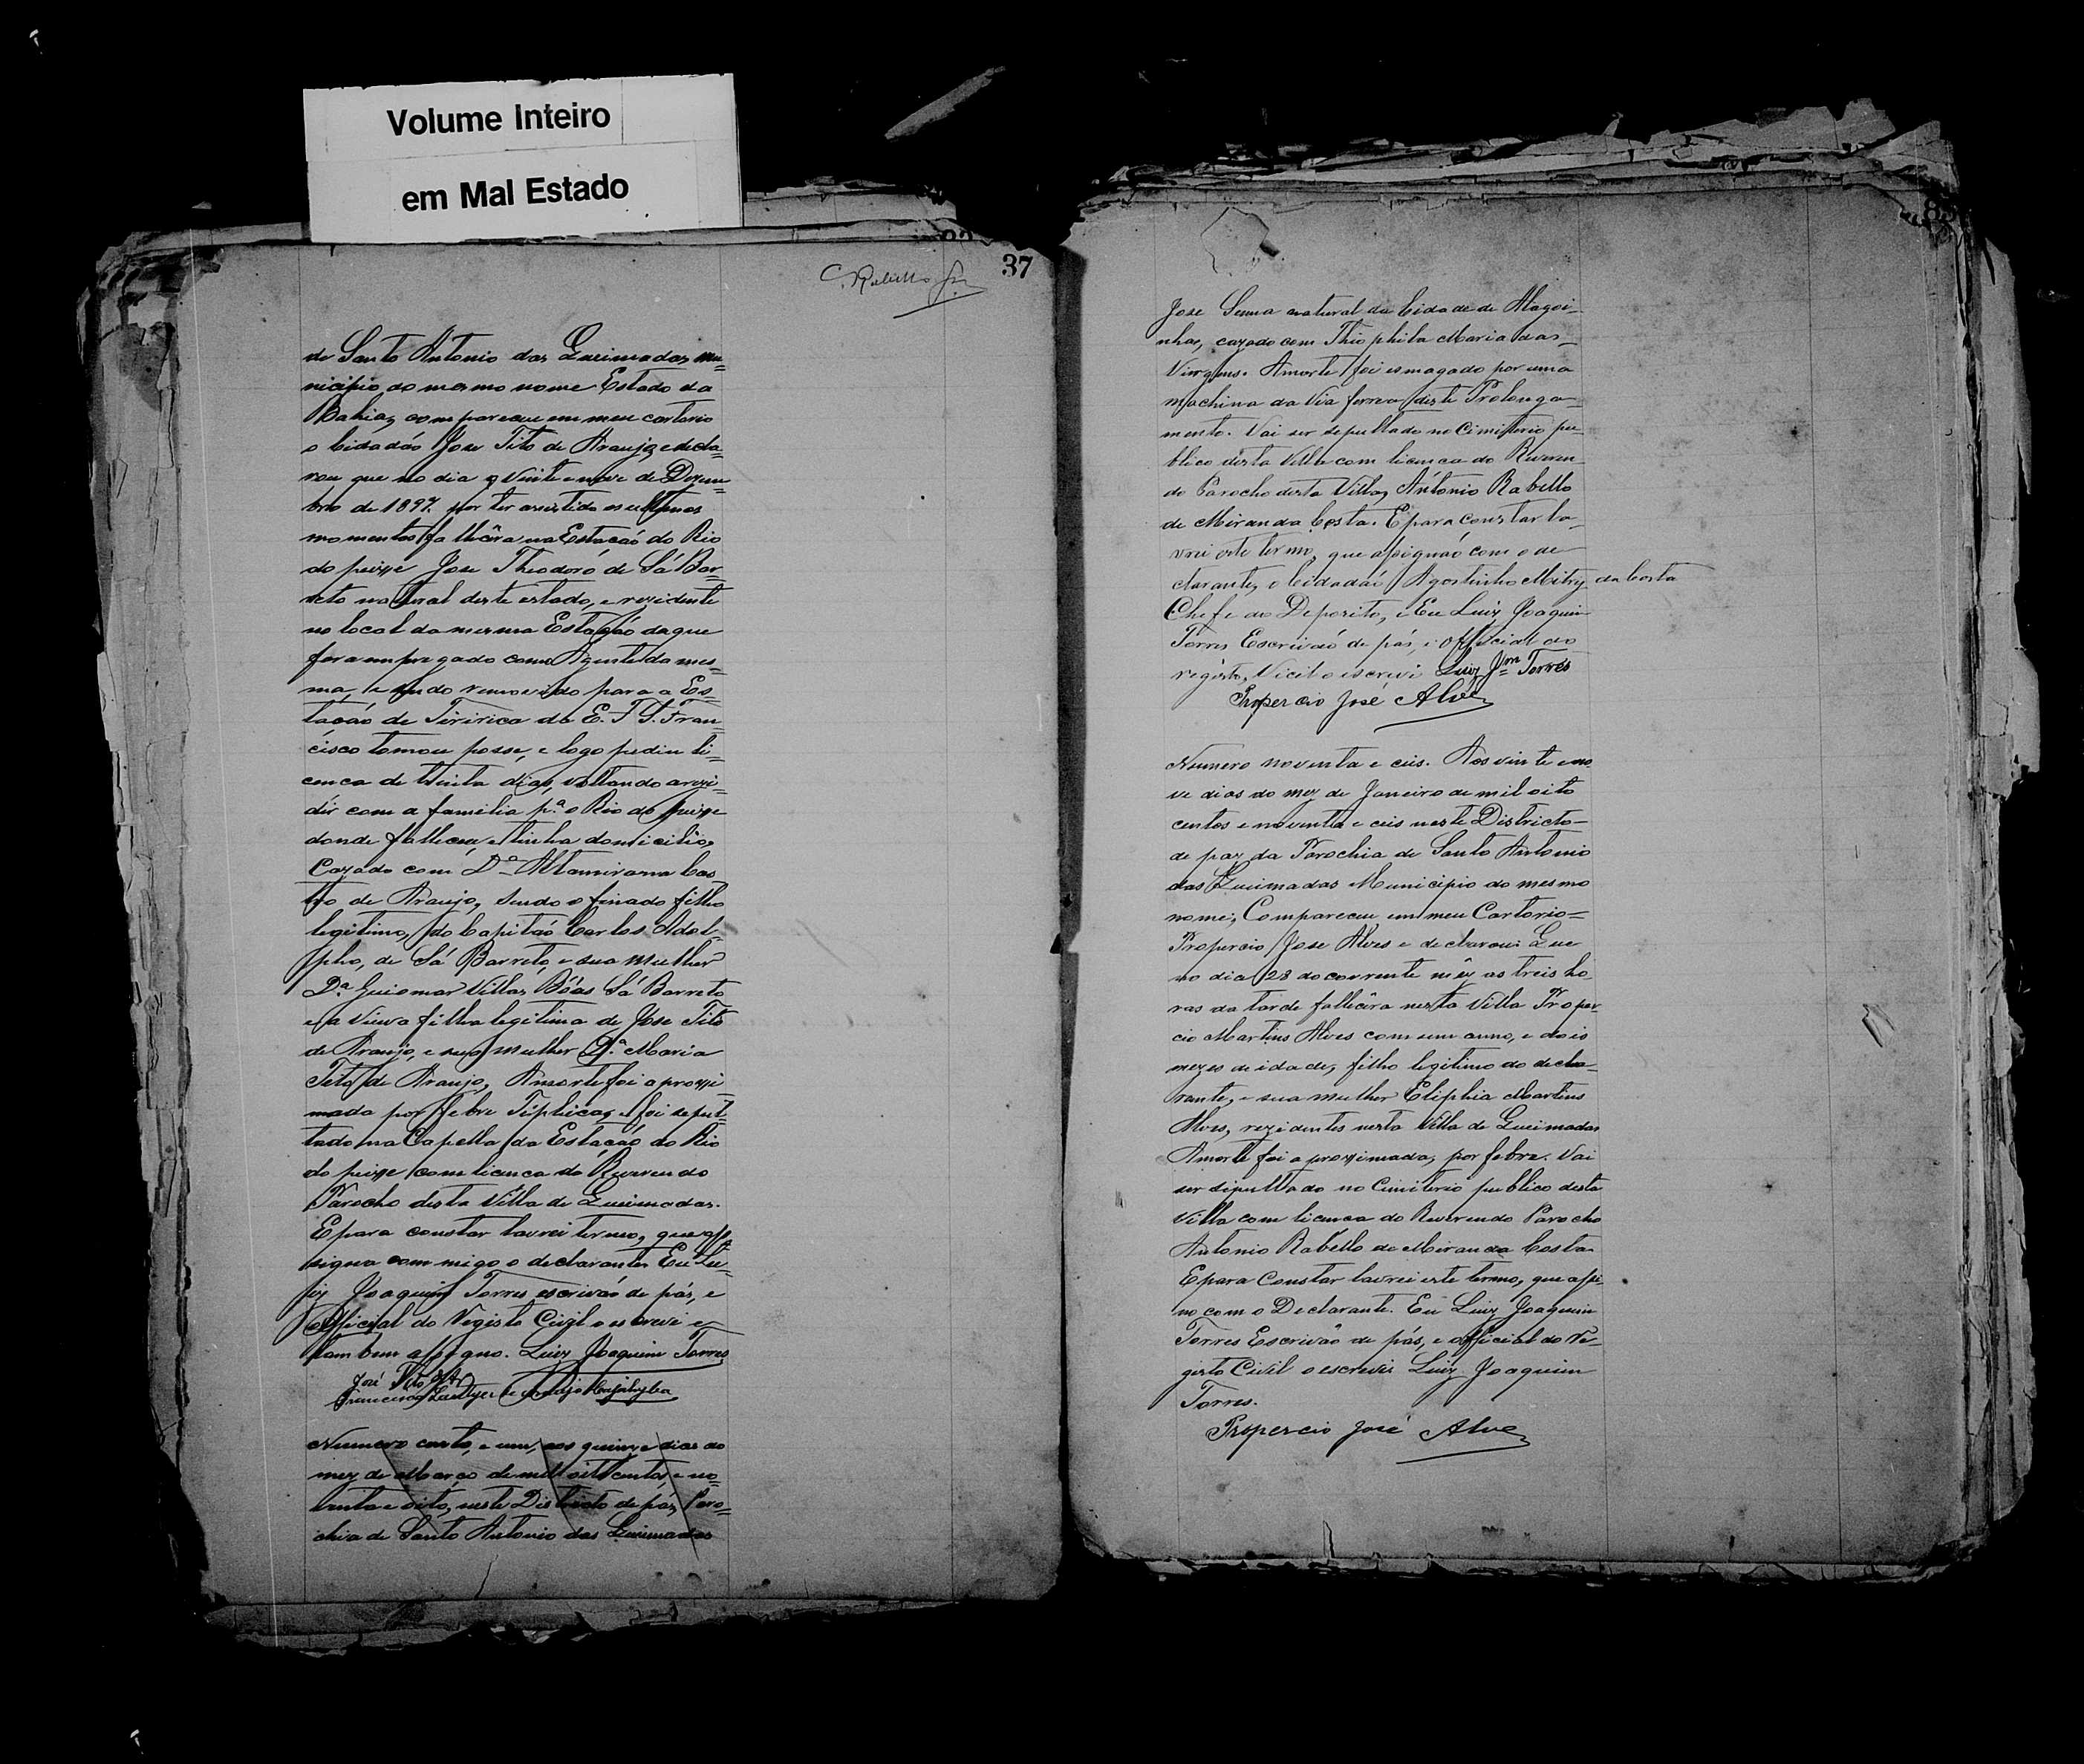 Volume Inteiro
em Mal Estado
37
C. Rabello Jr.
de Santo Antonio das Queimadas mu=
nicipio do mesmo nome Estado da
Bahia, compareceu em meu cartorio
o Cidadão Jose Tito de Araujo, e decla=
rou que no dia vinte e nove de Dezem=
bro de 1897 por ter assistido os ultimos
momentos fallecêra na Estacaó do Rio
do peixe Jose Theodoro de Sá Bar=
reto natural deste estado, e rezidente
no local da mesma Estação da que
fora empregado como Agente da mes=
ma, e sendo removido para a Es=
tacáo de Tiririca da E. F. S. Fran=
cisco tomou posse, e logo pediu li=
cenca de trinta dias, voltando a rezi=
dir com a familia p.ª o Rio do peixe
donde falleceu, e tinha domicilio,
Cazado com D.ª Altamirana Cas
tro de Araujo, sendo o finado filho
legitimo, do Capitaó Carlos Adol=
pho, de Sá Barreto, e sua mulher
D.ª Guiomar Villas Bôas Sá Barreto
e a viuva filha legitima de Jose Tito
de Araujo, e sua mulher D.ª Maria
Tito de Araujo, A morte foi a proxi
mada por febre Tiphica, e foi sepul=
tado na Capella da Estacaó do Rio
do peixe com licenca do Reverendo
Parocho desta Villa de Queimadas.
E para constar lavrei termo, que as
signa com migo o declarante. Eu Lu=
iz Joaquim Torres escrivaó de pás, e
Official do Registo Civil o escrevi e
tam bem assigno. Luiz Joaquim Torres
José Tito
Francisco de Araujo
Numero cento, e um, aos quinze dias do
mez de Março de mil oito centos, e no=
venta e oito, neste Districto de pás, Paro=
chia de Santo Antonio das Queimadas
Jose Senna natural da Cidade de Alagoi=
nhas, cazado com Thiophila Maria das
Virgens. A morte foi esmagado por uma
machina da Via ferrea deste Prolonga=
mento. Vai ser sepultado no Cimiterio pu=
blico desta Villa com licenca do Reveren=
do Parocho desta Villa, António Rabello
de Miranda Costa. E para constar la=
vrei este termo, que assignaó com o de
clarante, o Cidadaó Agostinho da Costa
Chefe do Deposito, e Eu Luiz Joaquim
Torres Escrivaó de pás, e official do
registo, Civil o escrevi Luiz Jm Torres
Propercio José Alves
Numero noventa e ceis. Aos vinte e no
ve dias do mez de Janeiro de mil oito
centos e noventa e ceis neste Districto=
de paz da Parochia de Santo Antonio
das Queimadas Municipio do mesmo
nome, Compareceu em meu Cartorio=
Propercio Jose Alves e declarou: Que
no dia 28 do corrente mêz as treis ho
ras da tarde fallecêra nesta Villa Proper
cio Martins Alves com um anno, e dois
mezes de idade, filho legitimo do decla=
rante, e sua mulher Eliphia Martins
Alves, rezidentes nesta Villa de Queimadas
A morte foi a proximada, por febre. Vai
ser sipultado no Cimiterio publico desta
Villa com licenca do Reverendo Parocho
Antonio Rabello de Miranda Costa
E para Constar lavrei este termo, que assi
no com o Declarante. Eu Luiz Joaquim
Torres Escrivão de pás, e official do Re=
gisto Civil o escrevi Luiz Joaquim
Torres.
Propercio José Alves